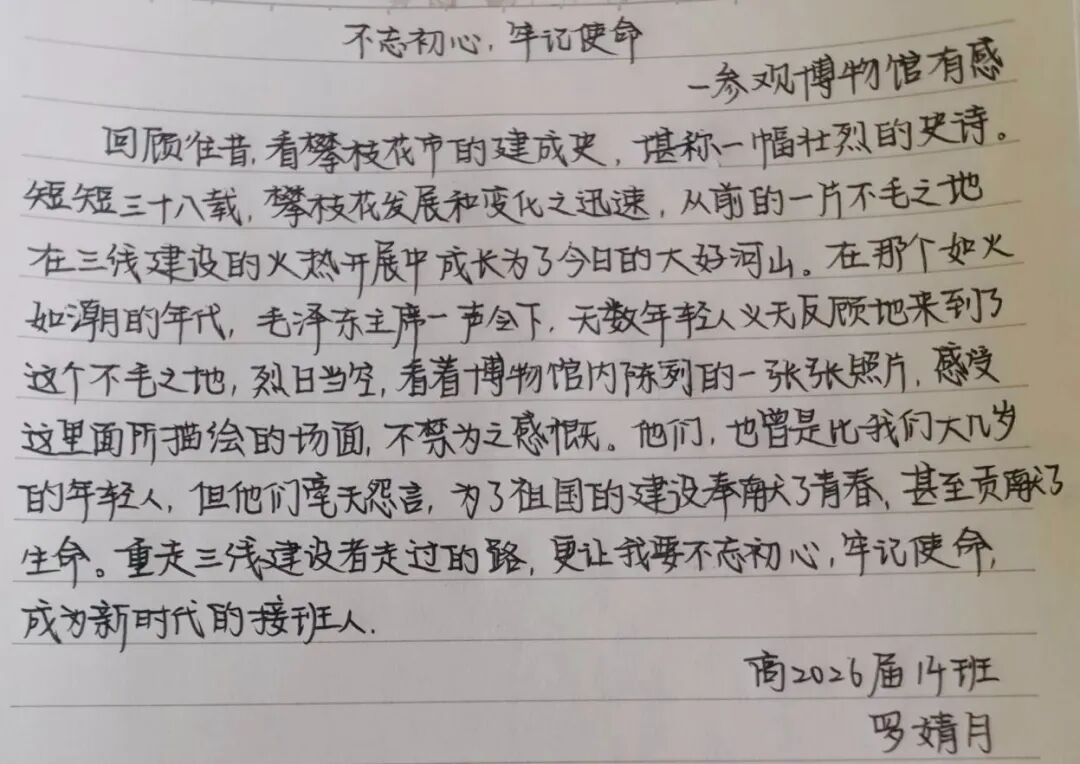 不忘初心，牢记使命
—参观博物馆有感
回顾往昔，看攀枝花市的建成史，堪称一幅壮烈的史诗。
短短三十八载，攀枝花发展和变化之迅速，从前的一片不毛之地
在三线建设的火热开展中成长为了今日的大好河山。在那个如火
如潮的年代，毛泽东主席一声令下，无数年轻人义无反顾地来到了
这个不毛之地，烈日当空，看着博物馆内陈列的一张张照片，感受
这里面所描绘的场面，不禁为之感慨。他们，也曾是比我们大几岁
的年轻人，但他们毫无怨言，为了祖国的建设奉献了青春，甚至贡献了
生命。重走三线建设者走过的路，更让我要不忘初心，牢记使命，
成为新时代的接班人.
高2026届14班
罗婧月